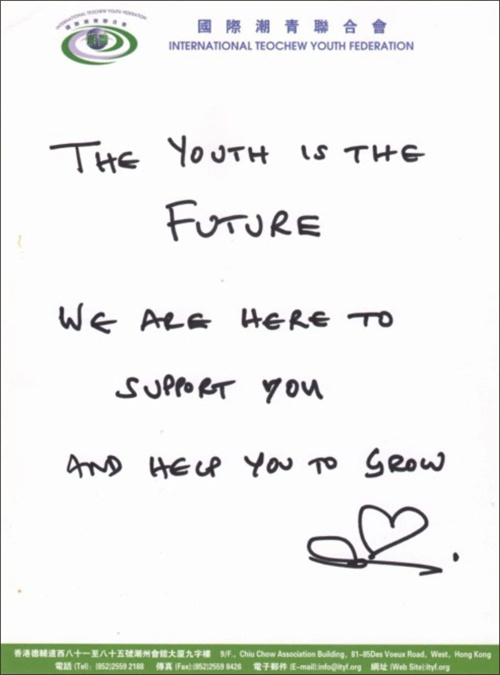 INTERNATIONAL TEOCHEW YOUTH FEDERATION
國際潮青聯合會
國際潮青聯合會
INTERNATIONAL TEOCHEW YOUTH FEDERATION
THE YOUTH IS THE
FUTURE
WE ARE HERE TO
SUPPORT YOU
AND HELP YOU TO GROW
香港德輔道西八十一至八十五號潮州會館大廈九字樓 9/F., Chiu Chow Association Building, 81-85Des Voeux Road, West, Hong Kong
電話 (Tel): (852)2559 2188 傳真 (Fax):(852)2559 8426 電子郵件 (E-mail):info@ityf.org 網址 (Web Site):ityf.org